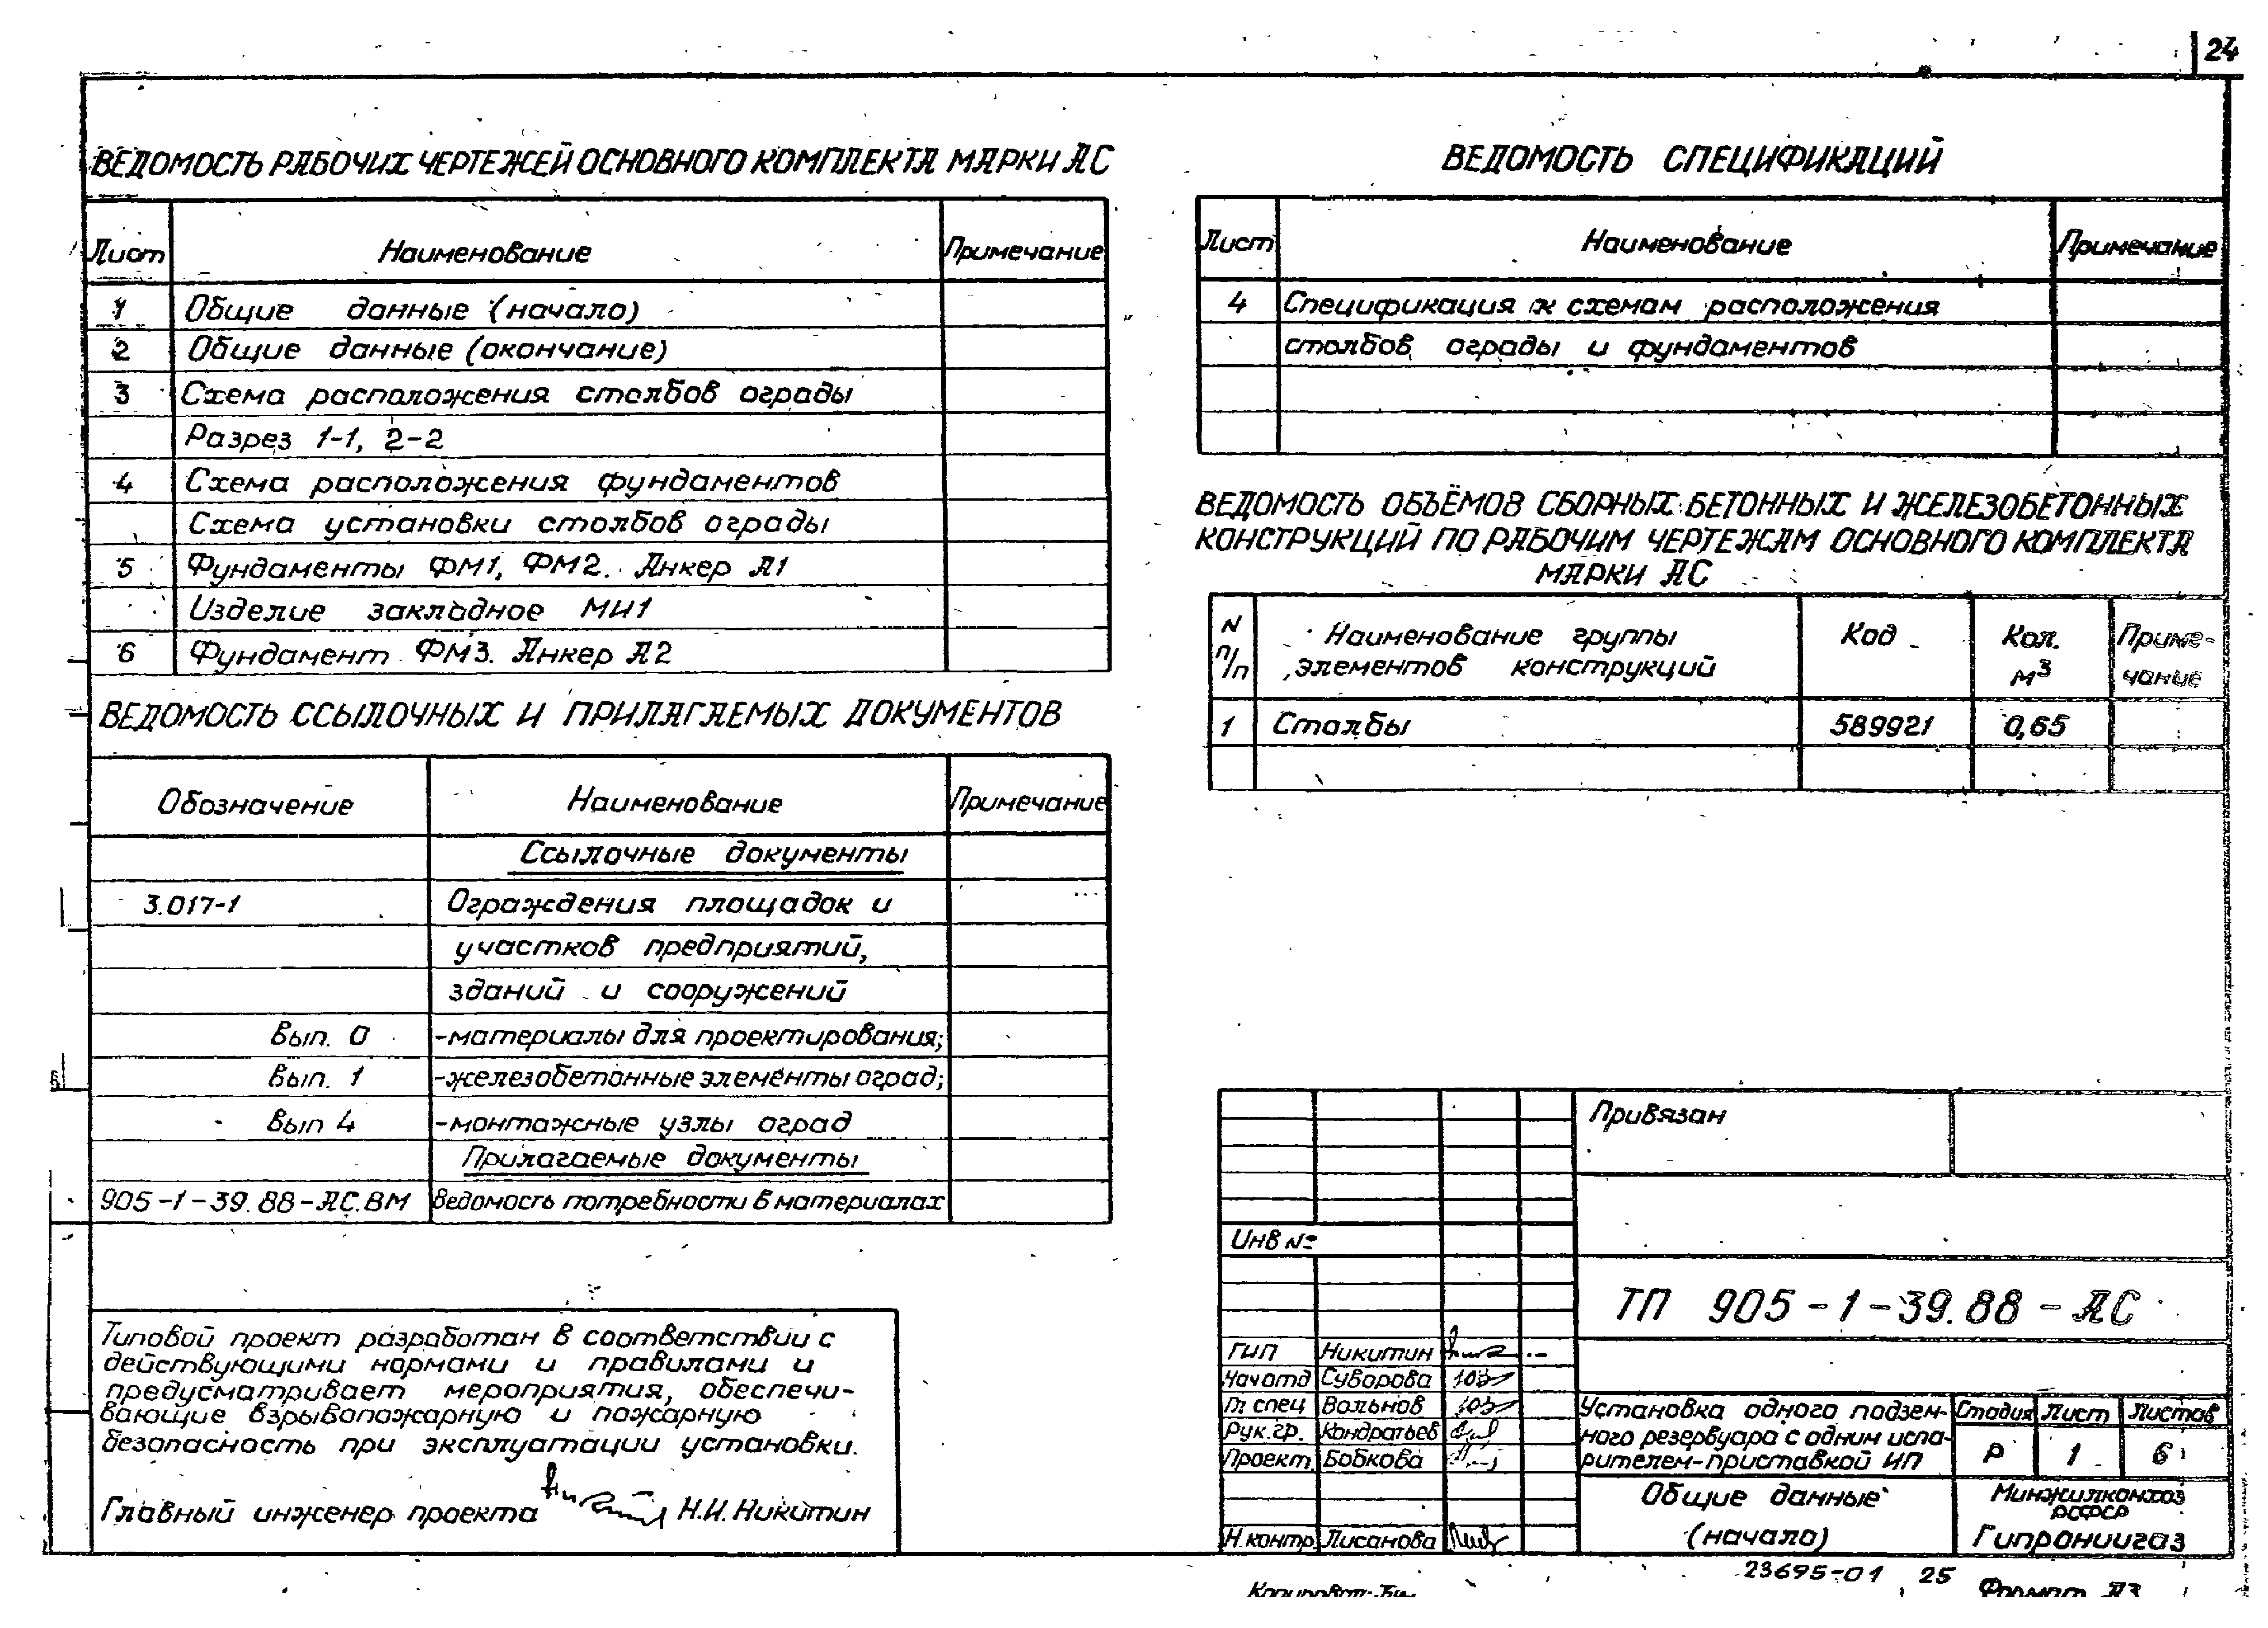 24
ВЕДОМОСТЬ РАБОЧИХ ЧЕРТЕЖЕЙ ОСНОВНОГО КОМПЛЕКТА МАРКИ АС
Лист Наименование Примечание
1 Общие данные (начало)
2 Общие данные (окончание)
3 Схема расположения столбов ограды
Разрез 1-1, 2-2
4 Схема расположения фундаментов
Схема установки столбов ограды
5 Фундаменты ФМ1, ФМ2. Анкер А1
Изделие закладное МИ1
6 Фундамент ФМ3. Анкер А2
ВЕДОМОСТЬ ССЫЛОЧНЫХ И ПРИЛАГАЕМЫХ ДОКУМЕНТОВ
Обозначение Наименование Примечание
Ссылочные документы
3.017-1 Ограждения площадок и
участков предприятий,
зданий и сооружений
Вып. 0 -материалы для проектирования;
Вып. 1 -железобетонные элементы оград;
Вып 4 -монтажные узлы оград
Прилагаемые документы
905-1-39.88-АС.ВМ Ведомость потребности в материалах
Типовой проект разработан в соответствии с
действующими нормами и правилами и
предусматривает мероприятия, обеспечи-
вающие взрывопожарную и пожарную
безопасность при эксплуатации установки.
Главный инженер проекта Н.И. Никитин
ВЕДОМОСТЬ СПЕЦИФИКАЦИЙ
Лист Наименование Примечание
4 Спецификация к схемам расположения
столбов ограды и фундаментов
ВЕДОМОСТЬ ОБЪЁМОВ СБОРНЫХ БЕТОННЫХ И ЖЕЛЕЗОБЕТОННЫХ
КОНСТРУКЦИЙ ПО РАБОЧИМ ЧЕРТЕЖАМ ОСНОВНОГО КОМПЛЕКТА
МАРКИ АС
N Наименование группы Код Кол. Приме-
п/п элементов конструкций м³ чание
1 Столбы 589921 0,65
Привязан
Инв №
ТП 905-1-39.88-АС
ГИП Никитин
Нач отд Суворова
Гл спец Вольнов
Рук. гр. Кондратьев
Проект. Бобкова
Н. контр. Лисанова
Установка одного подзем-
ного резервуара с одним испа-
рителем-приставкой ИП
Стадия Лист Листов
Р 1 6
Общие данные
(начало)
Минжилкомхоз
РСФСР
Гипрониигаз
23695-01 25
Формат А3